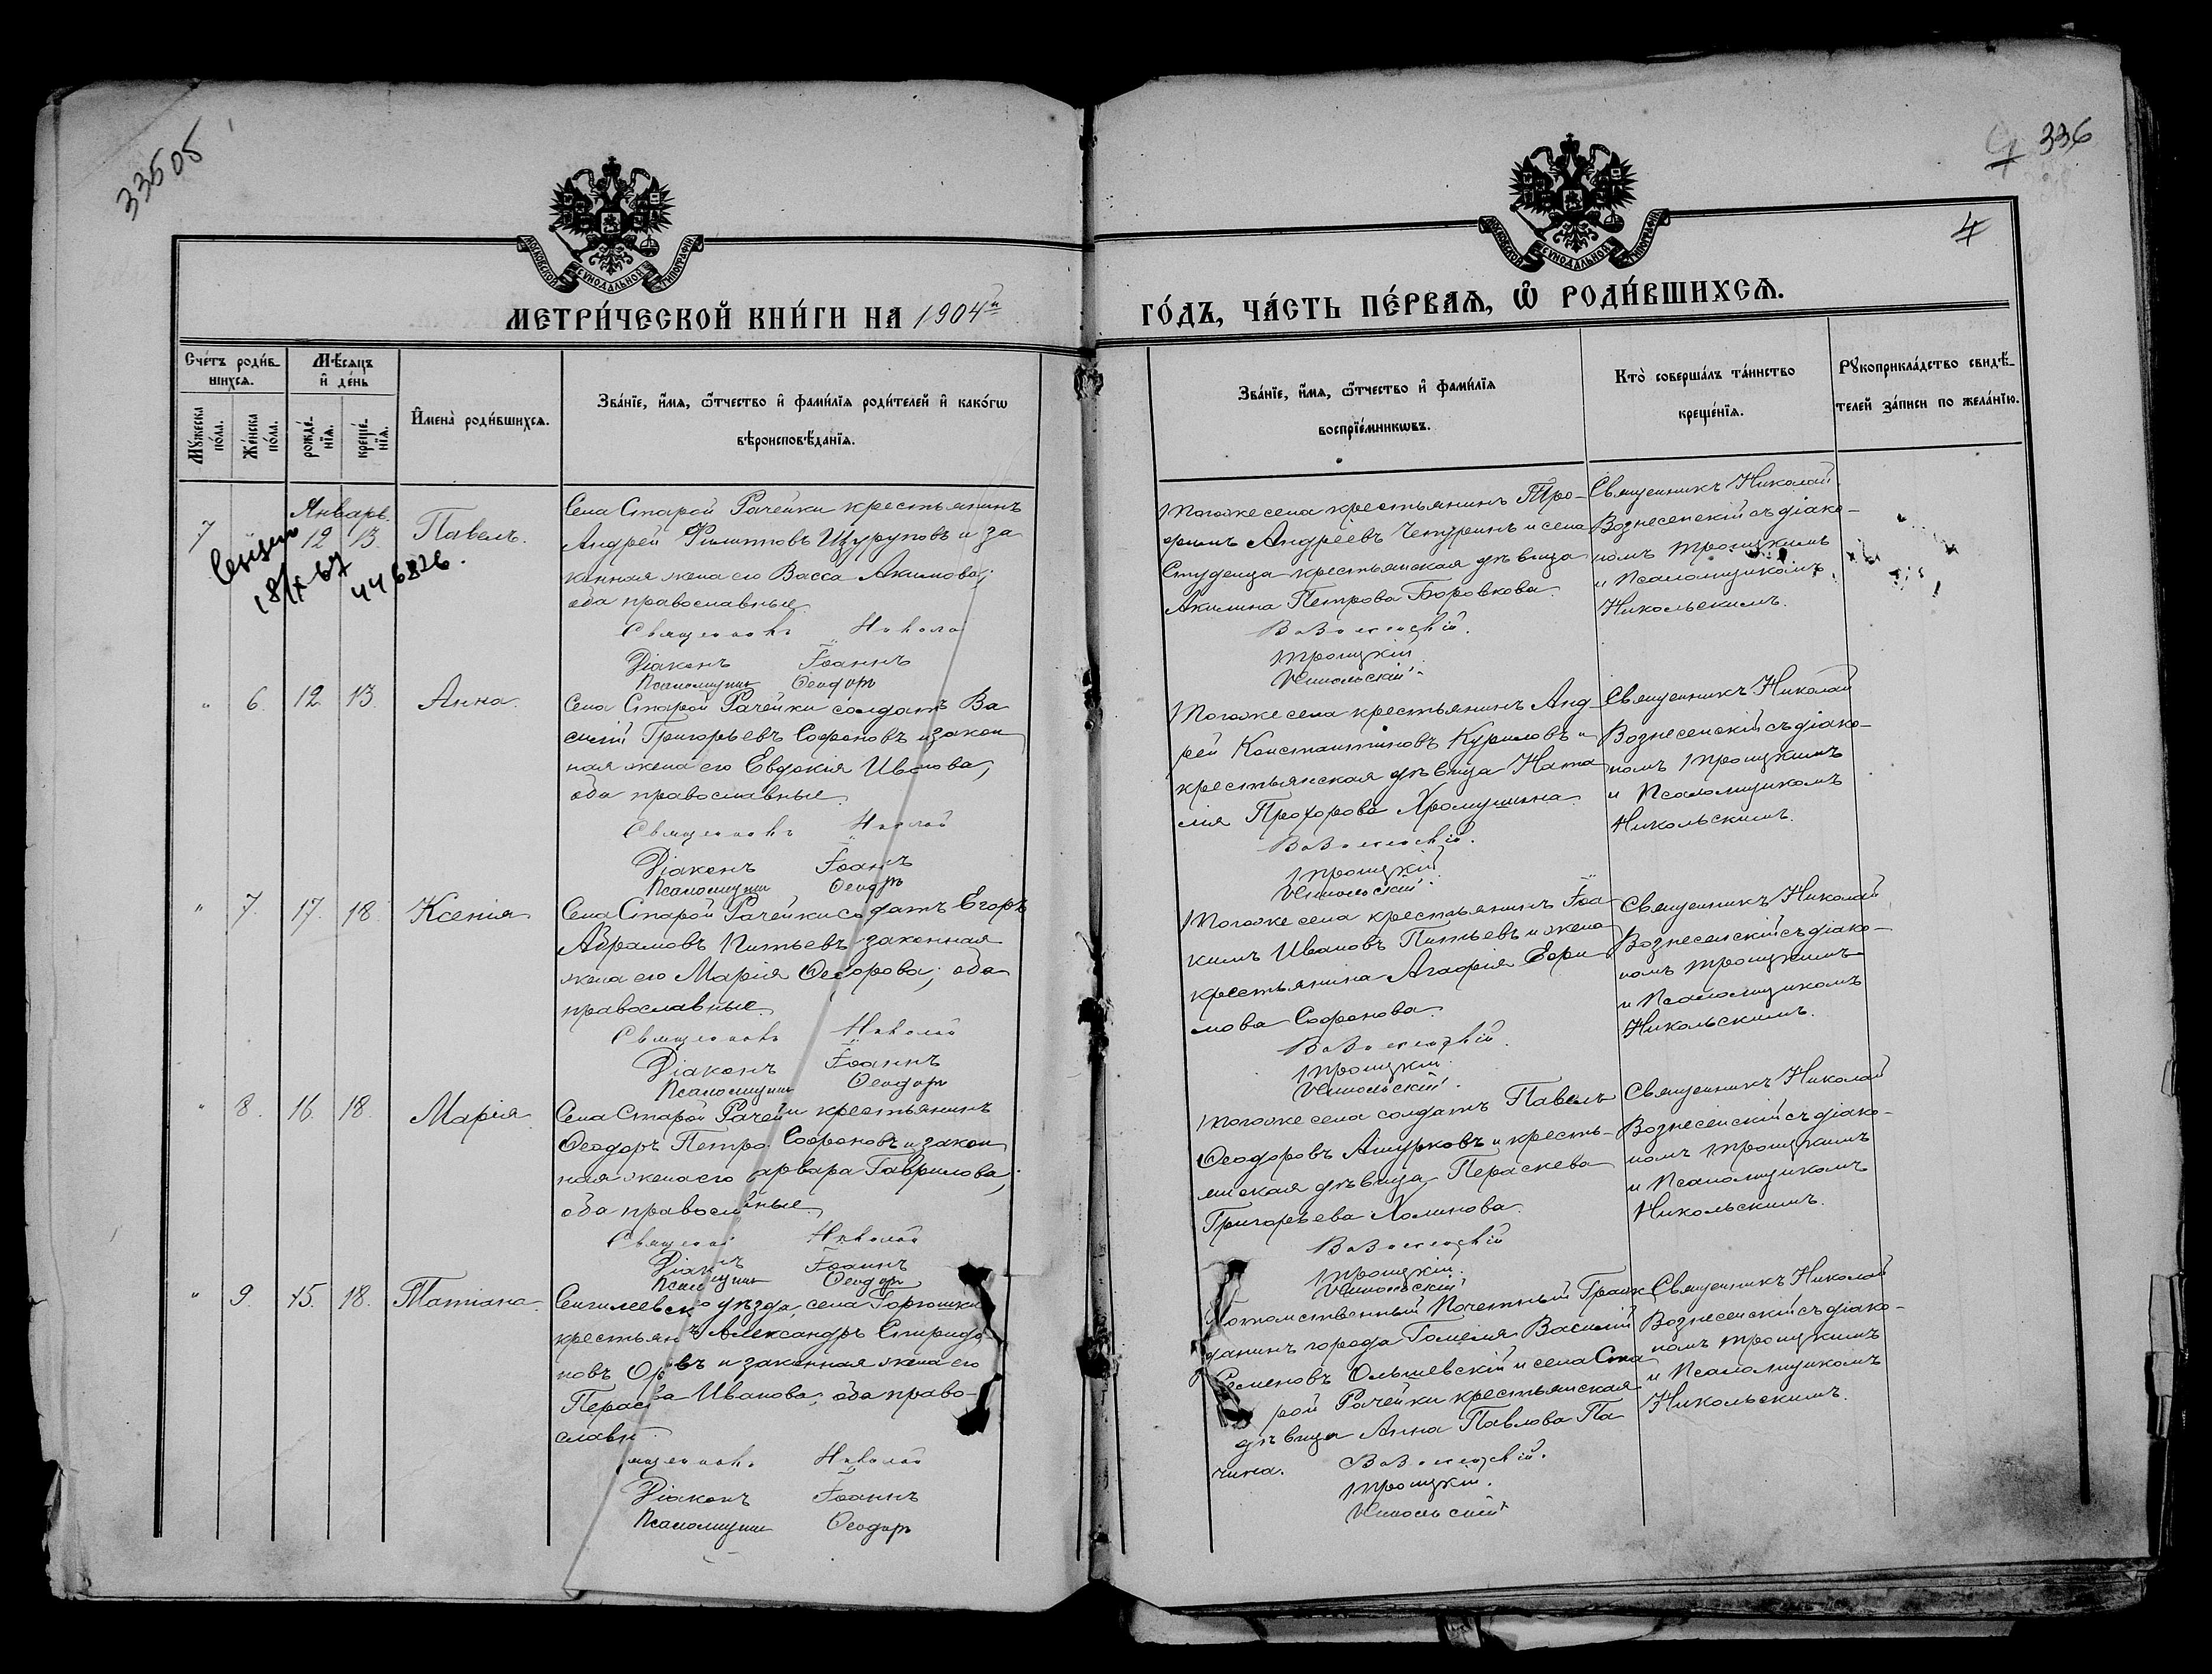 33505
336
4
МОСКОВСКОЙ СѴНОДАЛЬНОЙ ТИПОГРАФІИ
МОСКОВСКОЙ СѴНОДАЛЬНОЙ ТИПОГРАФІИ
МЕТРИ́ЧЕСКОЙ КНИ́ГИ НА 1904й
ГО́ДЪ, ЧА́СТЬ ПЕ́РВАѦ, Ѡ҆ РОДИ́ВШИХСѦ.
Сче́тъ роди́в-
шихсѧ.
Мꙋ́жеска по́ла.
Же́нска по́ла.
Мѣ́сѧцъ
и҆ де́нь
рожде́-
нїѧ.
креще́-
нїѧ.
И҆мена̀ роди́вшихсѧ.
Зва́нїе, и҆́мѧ, ѻ҆́тчество и҆ фами́лїѧ роди́телей и҆ како́гѡ
вѣроисповѣ́данїѧ.
Зва́нїе, и҆́мѧ, ѻ҆́тчество и҆ фами́лїѧ
воспрїе́мникѡвъ.
Кто̀ соверша́лъ та́инство
креще́нїѧ.
Рꙋкоприкла́дство свидѣ́-
телей за́писи по жела́нїю.
Январь.
7 12 13. Павелъ.
18/IX-67
446826.
Села Старой Рачейки крестьянинъ
Андрей Филипповъ Щуруповъ и за
конная жена его Васса Акимова;
оба православные.
Священникъ Никола
Діаконъ Іоаннъ
Псаломщикъ Ѳеодоръ
Тогоже села крестьянинъ Тро-
фимъ Андреевъ Чепуринъ и села
Студенца крестьянская дѣвица
Акилина Петрова Боровкова.
Вознесенскій.
Троицкій
Никольскій
Священникъ Николай
Вознесенскій съ діако-
номъ Троицкимъ
и Псаломщикомъ
Никольскимъ.
" 6. 12 13. Анна.
Села Старой Рачейки солдатъ Ва
силій Григорьевъ Софоновъ и закон
ная жена его Евдокія Иванова;
оба православные.
Священникъ Николай
Діаконъ Іоаннъ
Псаломщикъ Ѳеодоръ
Тогоже села крестьянинъ Анд-
рей Константиновъ Куриловъ и
крестьянская дѣвица Ната
лія Прохорова Хромушина.
Вознесенскій.
Троицкій
Никольскій.
Священникъ Николай
Вознесенскій съ діако-
номъ Троицкимъ
и Псаломщикомъ
Никольскимъ.
" 7. 17. 18. Ксенія
Села Старой Рачейки со датъ Егоръ
Абрамовъ Питьевъ законная
жена его Марія Ѳеодорова; оба
православные.
Священникъ Николай
Діаконъ Іоаннъ
Псаломщикъ Ѳеодоръ
Тогоже села крестьянинъ Іоа
кимъ Ивановъ Питьевъ и жена
крестьянина Агафія Ефи
мова Софонова.
Вознесенскій.
Троицкій.
Никольскій.
Священникъ Николай
Вознесенскій съ діако-
номъ Троицкимъ
и Псаломщикомъ
Никольскимъ.
" 8. 16. 18. Марія
Села Старой Рачейи крестьянинъ
Ѳеодоръ Петро Софоновъ и закон
ная жена его арвара Гаврилова;
оба правосл ные.
Священни Николай
Діак ъ Іоаннъ
Псал щикъ Ѳеодоръ
Тогоже села солдатъ Павелъ
Ѳеодоровъ Ашурковъ и кресть-
янская дѣвица Пераскева
Григорьева Ломинова.
Вознесенскій
Троицкій.
Никольскій
Священникъ Николай
Вознесенскій съ діако-
номъ Троицкимъ
и Псаломщикомъ
Никольскимъ.
" 9. 15. 18. Татіана.
Сенгилеевск о уѣзда, села Горюшки
крестьян ъ Александръ Спиридо
новъ Ор въ и законная жена его
Перас ва Иванова; оба право-
славн
щенникъ Николай
Діаконъ Іоаннъ
Псаломщикъ Ѳеодоръ
Потомственный Почетный Граж
данинъ города Гомеля Василій
Семеновъ Ольшевскій и села Ста
рой Рачейки крестьянская
дѣвица Анна Павлова Па
чина.
Вознесенскій.
Троицкій.
Никольскій
Священникъ Николай
Вознесенскій съ діако-
номъ Троицкимъ
и Псаломщикомъ
Никольскимъ.